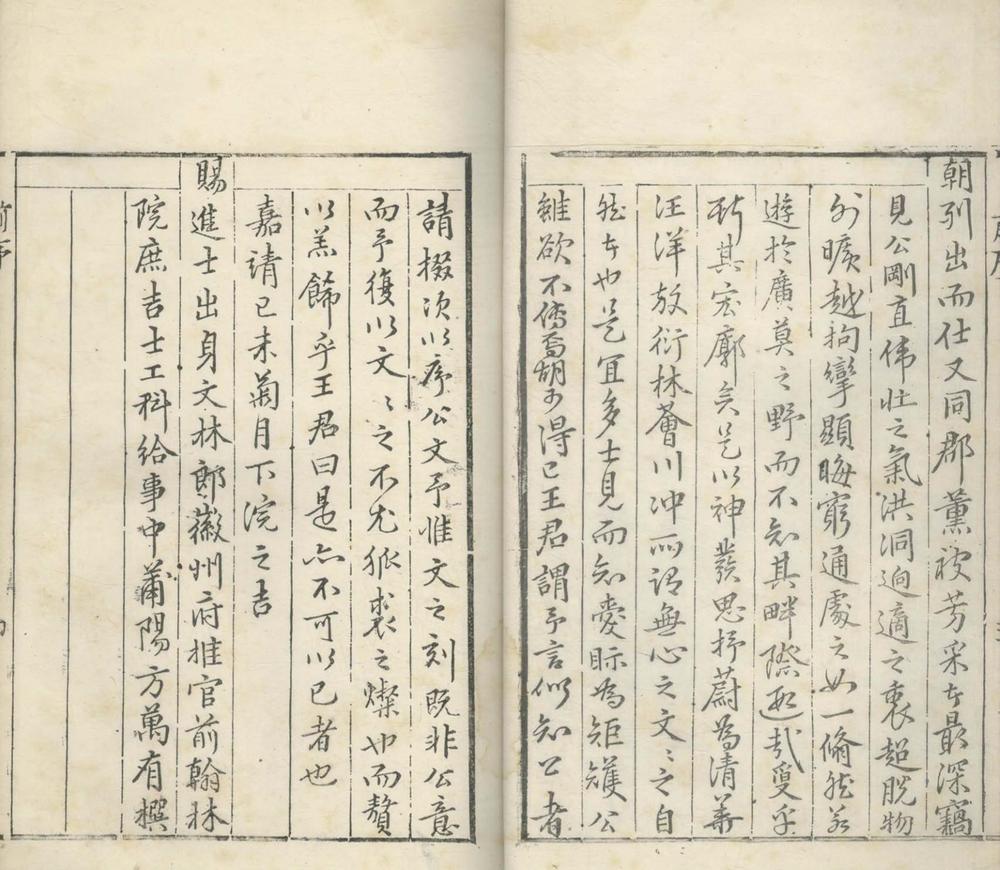 朝列出而仕又同郡薰被芳采知最深竊
見公剛直偉壯之氣洪洞迥適之衷超脫物
外曠越拘攣顯晦窮通處之如一翛然若
遊於廣莫之野而不知其畔際遐哉夐乎
斯其宏廓矣是以神發思抒蔚為清華
汪洋放衍林薈川沖所謂無心之文〻之自
然者也是宜多士見而知愛眎為矩矱公
雖欲不傳焉胡可得已王君謂予言似知公者
請掇次以序公文予惟文之刻既非公意
而予復以文〻之不尤狐裘之燦也而贅
以羔飾乎王君曰是亦不可以已者也
嘉靖已未菊月下浣之吉
賜進士出身文林郎徽州府推官前翰林
院庶吉士工科給事中莆陽方萬有撰